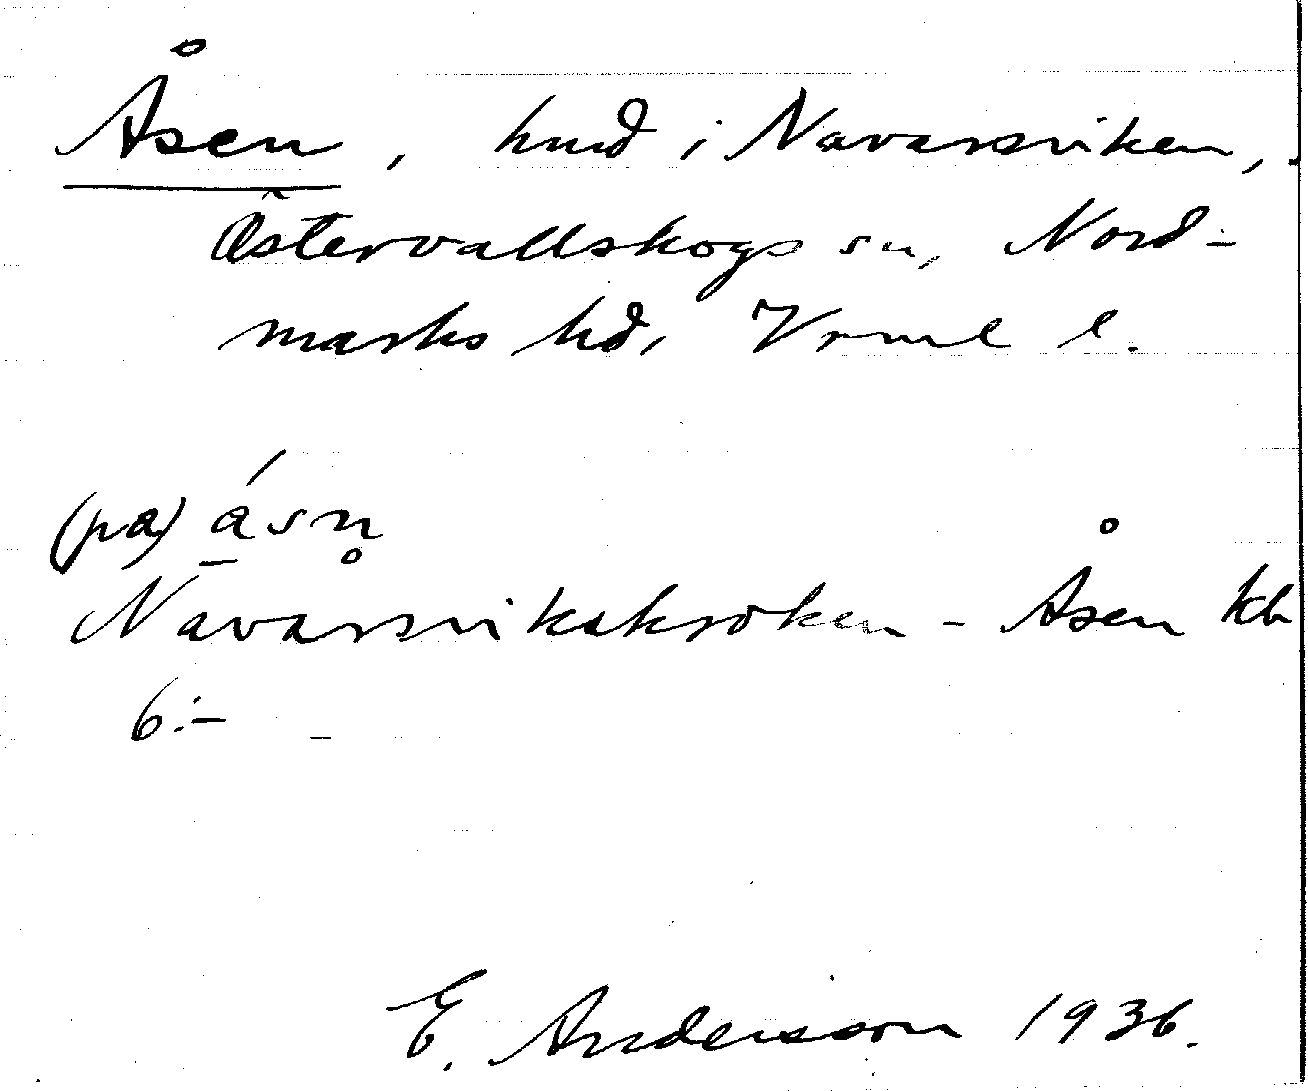 Åsen, hmd i Navarsviken,
Östervallskogs sn, Nord-
marks hd, Vrml l.
(pa) ásn̥
Navarsvikskroken - Åsen kb
6:-
E. Andersson 1936.